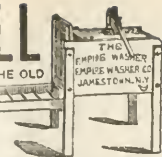 LL
HE OLD
THE
EMPIRE WASHER
EMPIRE WASHER CO
JAMESTOWN.N.Y